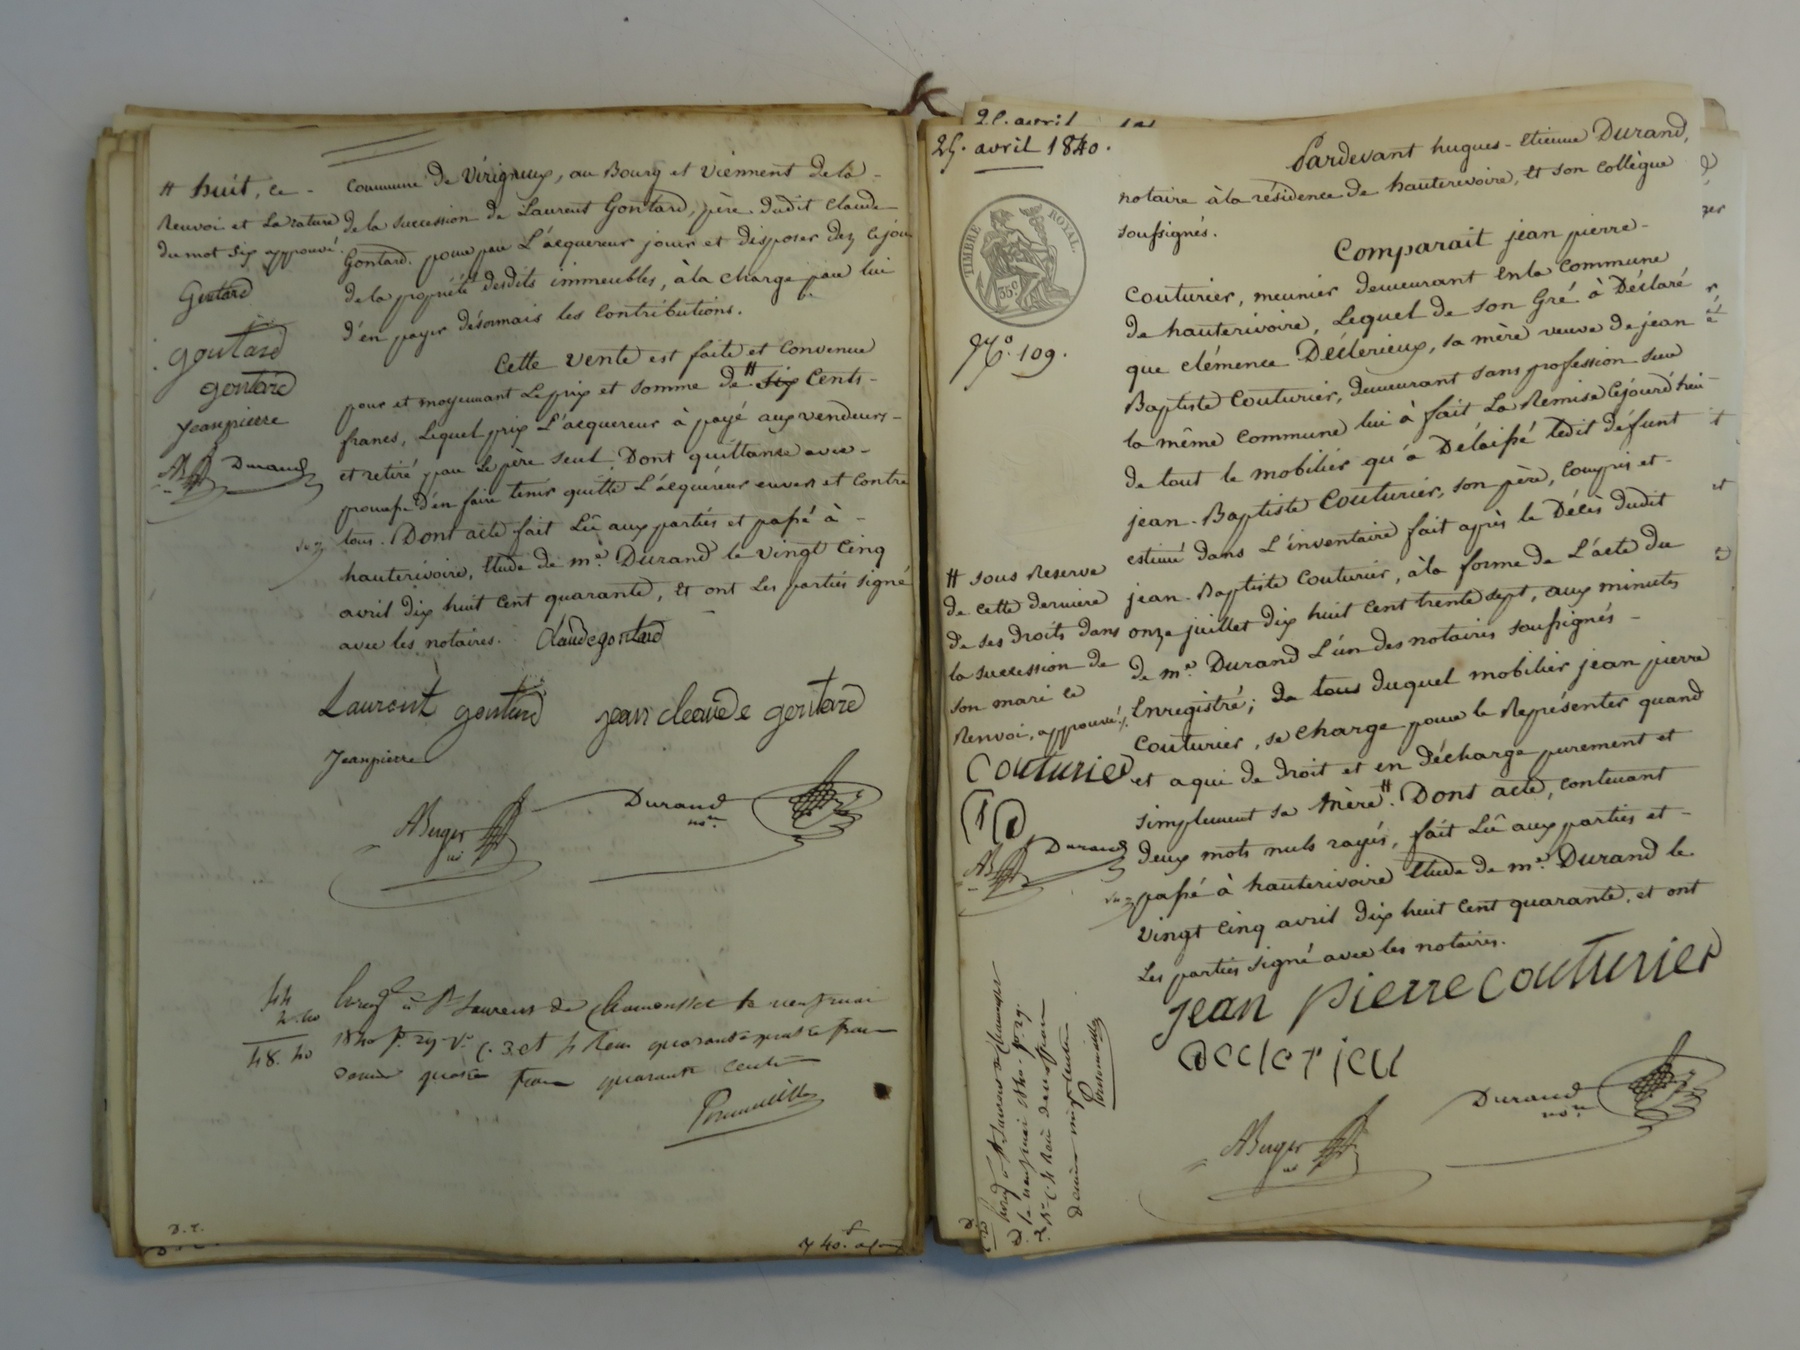 commune de Virigneux, au Bourg et viennent de la -
de la succession de Laurent Gontard, père dudit Claude
Gontard. pour par L'acquereur jouir et disposer dez cejour
de la propriété desdits immeubles, à la charge par lui
d'en payer désormais les Contributions.
Cette vente est faite et convenue
pour et moyennant Le prix et somme de # six Cents-
francs, Lequel prix L'acquereur à payé aux vendeurs-
et retiré par Le père seul. Dont quittance avec-
promesse d'en faire tenir quitte L'acquéreur envers et contre
tous. Dont acte fait Lû aux parties et passé à -
hauterivoire, Etude de me. Durand le vingt Cinq
avril dix huit Cent quarante, Et ont Les parties signé
avec les notaires. Claude gontard
Laurent gontard jean cleaude gontard
Jeanpierre
ABuger
Durand
nore.
# huit, ce -
Renvoi et La rature
du mot six approuvé.
Gontard
goutard
gontard
Jeanpierre
AB Durand
44
4.40
48.40
Enregé à St Laurent de Chamousset le neuf mai
1840 fo. 29 Vo. C. 3 et 4 Reçu quarante quatre francs
décime quatre francs quarante cent
D. 2.
25. avril
25. avril 1840.
TIMBRE ROYAL
35c
No. 109.
Pardevant hugues-Etienne Durand,
notaire à la résidence de hauterivoire, Et son Collègue
soussignés.
Comparait jean pierre-
Couturier, meunier demeurant En la Commune
de hauterivoire, Lequel de son Gré à Déclaré
que clémence Déclerieux, sa mère veuve de jean
Baptiste Couturier, demeurant sans profession sur
la même Commune lui à fait La Remise Cejourd'hui-
de tout le mobilier qu'a Délaissé ledit défunt
jean-Baptiste Couturier, son père, Compris et-
estimé dans L'inventaire fait après le Décès dudit
jean-Baptiste Couturier, à la forme de L'acte du
onze juillet dix huit Cent trente sept, aux minutes
de me. Durand L'un des notaires soussignés -
Enregistré; de tous duquel mobilier jean pierre
Couturier, se charge pour le Représenter quand
et a qui de Droit et en Décharge purement et
simplement sa Mère #. Dont acte, contenant
deux mots nuls rayés, fait Lû aux parties et-
passé à hauterivoire Etude de me. Durand le
vingt Cinq avril dix huit Cent quarante, et ont
Les parties signé avec les notaires.
jean pierre couturier
declerieu
ABuger
Durand
nore
# sous Reserve
de cette derniere
de ses droits dans
la succession de
son mari ce
Renvoi, approuvé./.
Couturier
AB Durand
Enregé à St Laurent de Chamousset
le neuf mai 1840. fo. 29.
Vo. C. 4 Reçu deux francs
décime vingt centimes